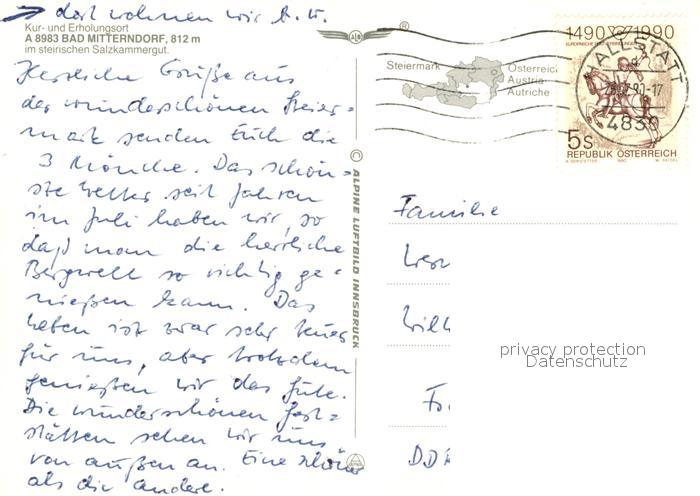 dort wohnen wir
Kur- und Erholungsort
A 8983 BAD MITTERNDORF, 812 m
im steirischen Salzkammergut.
Herzliche Grüße aus
der wunderschönen Steier=
mark senden Euch die
3 Mönche. Das schön=
ste Wetter seit Jahren
im Juli haben wir, so
daß man die herrliche
Bergwelt so richtig ge=
nießen kann. Das
Leben ist zwar sehr teuer
für uns, aber trotzdem
genießen wir das Gute.
Die wunderschönen Gast=
stätten sehen wir uns
von außen an. Eine schöner
als die andere.
ALPINE LUFTBILD INNSBRUCK
Steiermark
Österreich
Austria
Autriche
1490 1990
HALLSTATT
4830
5s
REPUBLIK ÖSTERREICH
Familie
DDR
privacy protection
Datenschutz